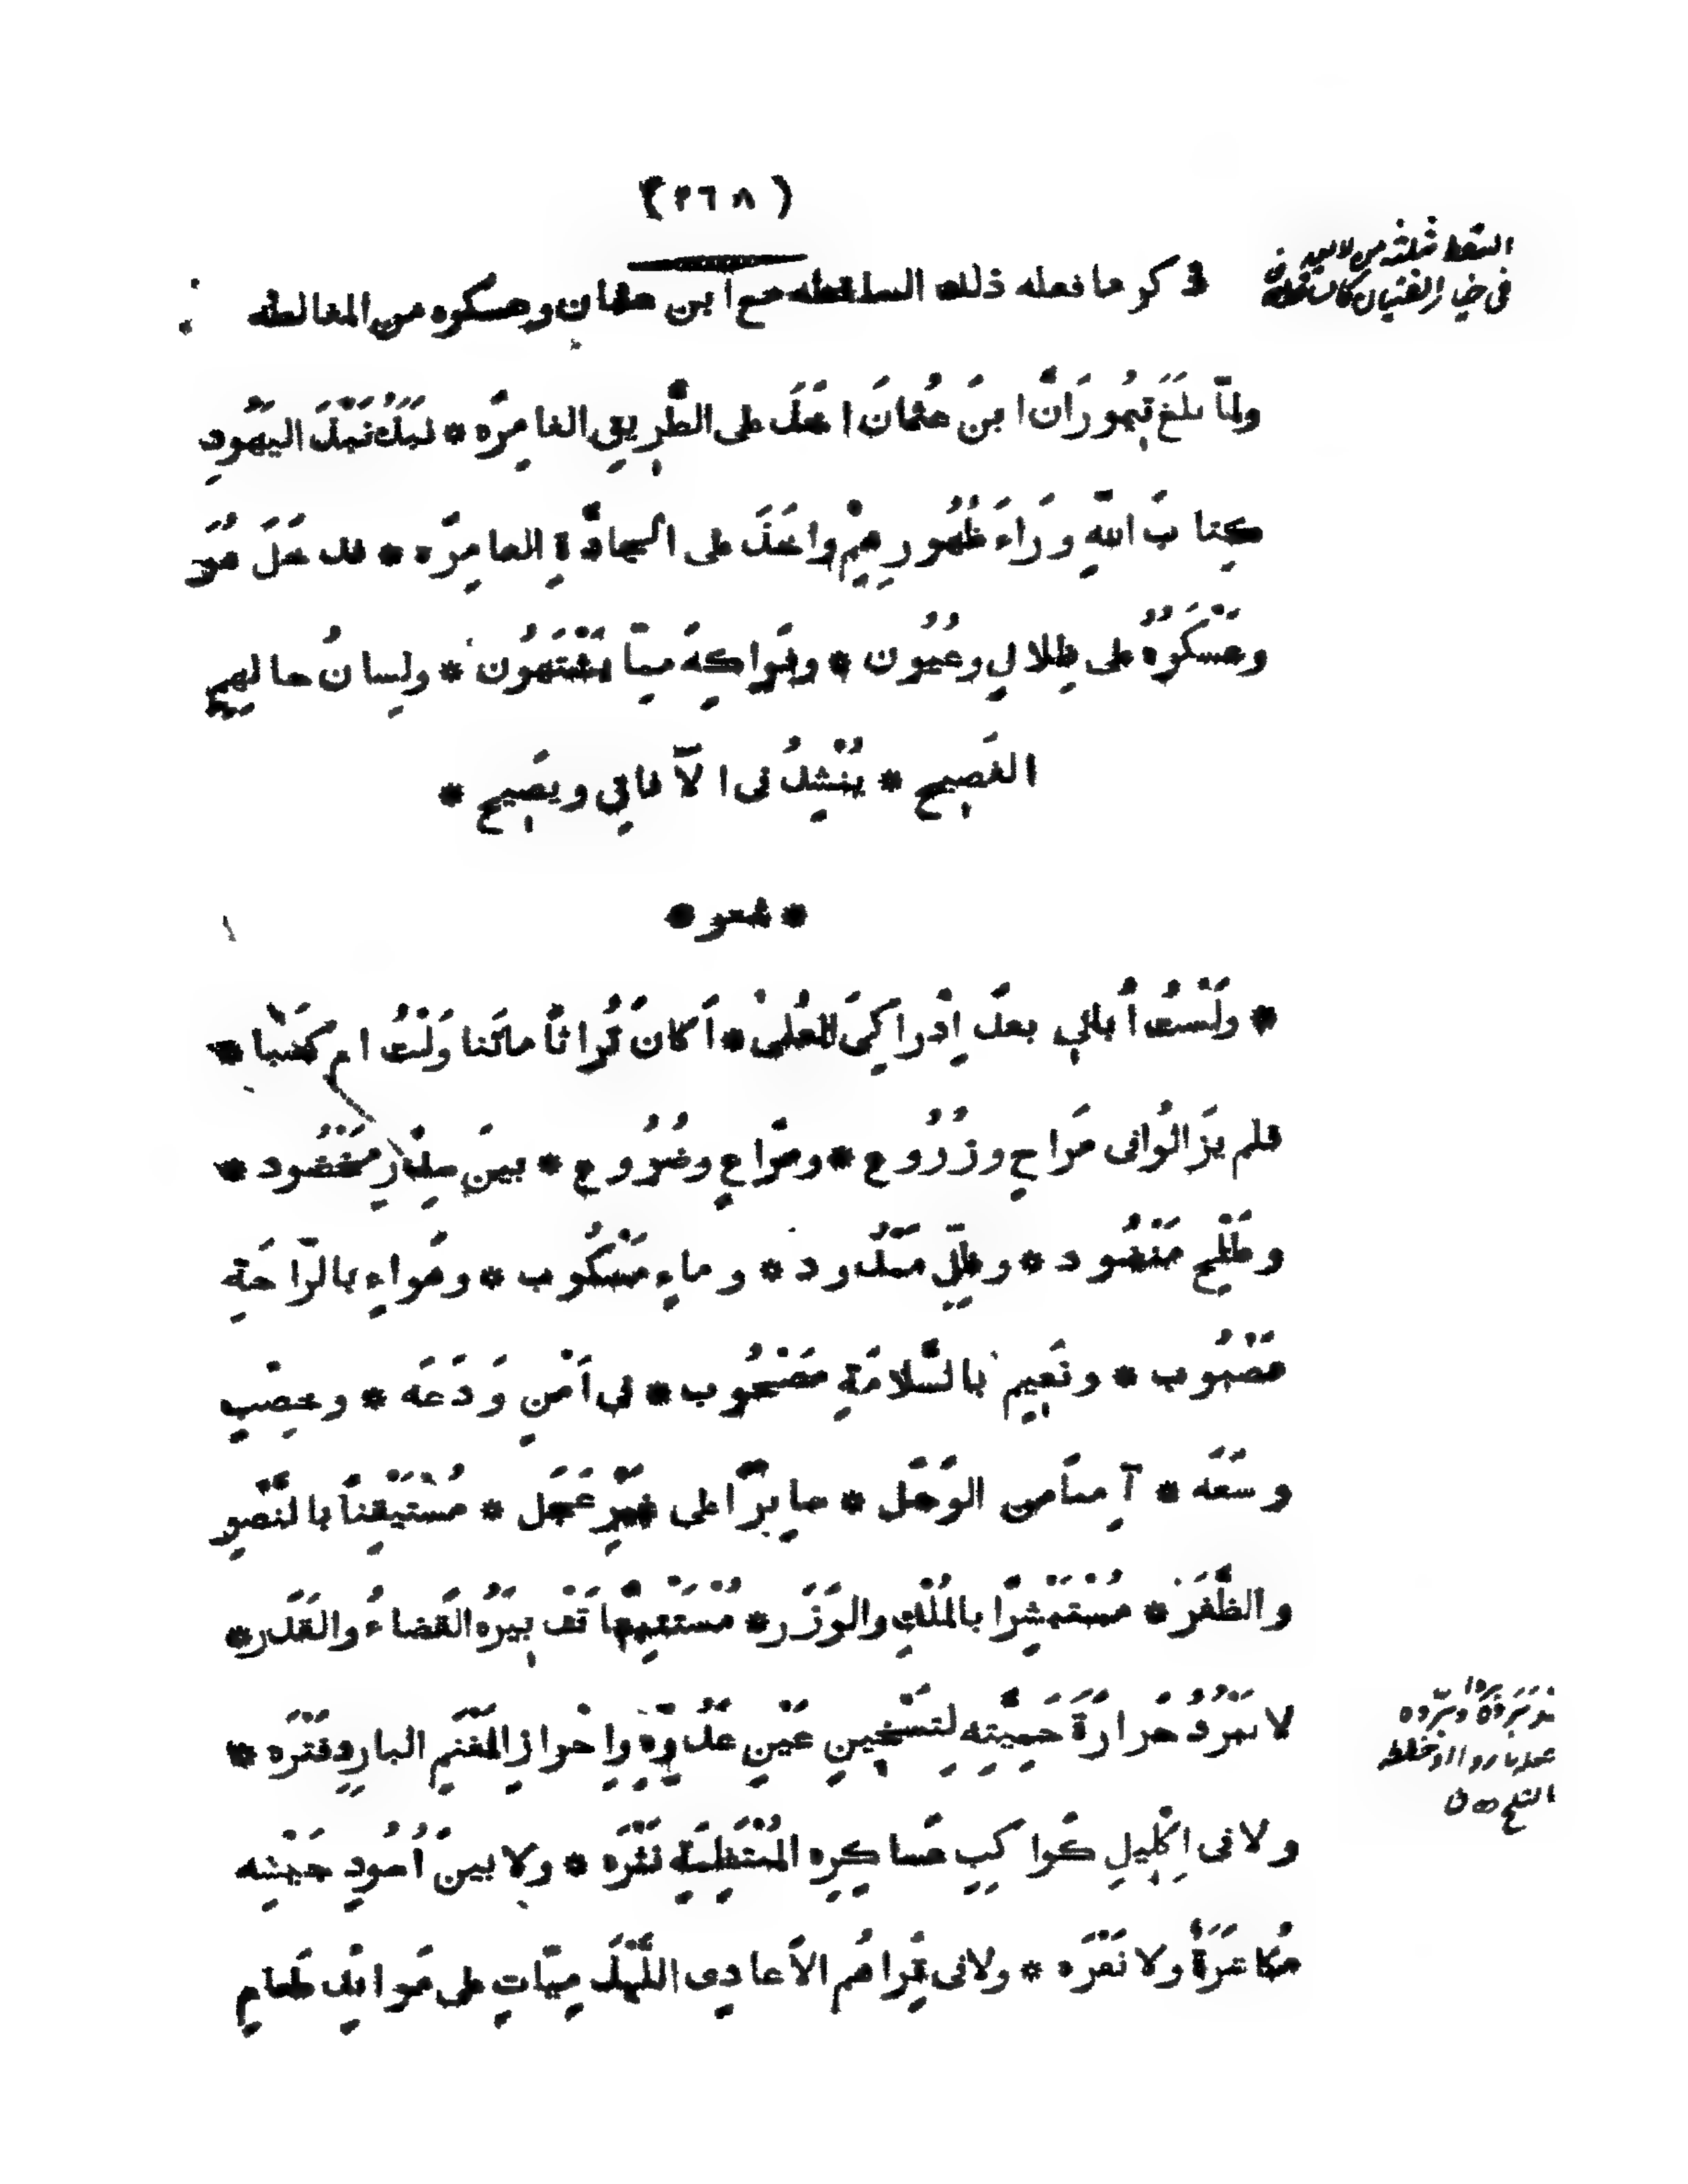 (٢٦٨)
ذكر ما فعله ذلك الساقطه مع ابن عثمان وعسكره من المغالطه
ولمّا بلَغَ تِيمُورَ اَنَّ ابنَ عُثمانَ اَخَذَ على الطَّرِيقِ الغامِرَه * نَبَذَ نَبْذَ اليَهُودِ
كِتابَ اللّهِ وَرَاءَ ظُهُورِهِمْ واَخَذَ على الجادَّةِ العامِرَه * فدخَلَ هُوَ
وعَسْكَرُهُ على ظِلالٍ وعُيُون * وفَواكِهَ مِمّا يَشْتَهُون * ولِسانُ حالِهِم
الفَصِيح * يُنْشِدُ فى الآفاقِ ويَصِيح *
* شعر *
* ولَسْتُ اُبالِي بعدَ اِدْراكِىَ العُلىْ * اَكانَ تُراثًا ما تَناوَلْتُ ام كَسْبا *
فلم يَزالُوا فى مَراحٍ وزُرُوع * ومَراعٍ وضُرُوعٍ * بينَ سِدْرٍ مَخْضُود *
وطَلْحٍ مَنْضُود * وظِلٍّ مَمْدُود * وماءٍ مَسْكُوب * وهَواءٍ بالرّاحَةِ
مَصْبُوب * ونَعِيمٍ بالسَّلامَةِ مَصْحُوب * فى اَمْنٍ وَدَعَه * وخِصْبٍ
وسَعَه * آمِنًا من الوَجَل * سايِرًا على غيرِ عَجَل * مُسْتَيْقِنًا بالنَّصْرِ
والظَّفَر * مُسْتَبْشِرًا بالمُلْكِ والوَزَر * مُسْتَتْبِعًا تَدْبِيرَهُ القَضاءُ والقَدَر *
لا تَبْرُدُ حَرارَةَ حَمِيَّتِه لتَسْخِينِ عَيْنِ عَدُوِّهِ واِحْرازِ المَغْنَمِ البارِدِ فَتْرَه *
ولا فى اِكْلِيلِ كَواكِبِ عَساكِرِه المُنْتَظِمَةِ نَثْرَه * ولا بينَ اُسُودِ جَيْشِه
مُكاشَرَةٌ ولا نَفْرَه * ولا فى قِراهُم الاَعادِى اللَّهْذَمِيّاتِ على مَوايِدِ طَعامِ